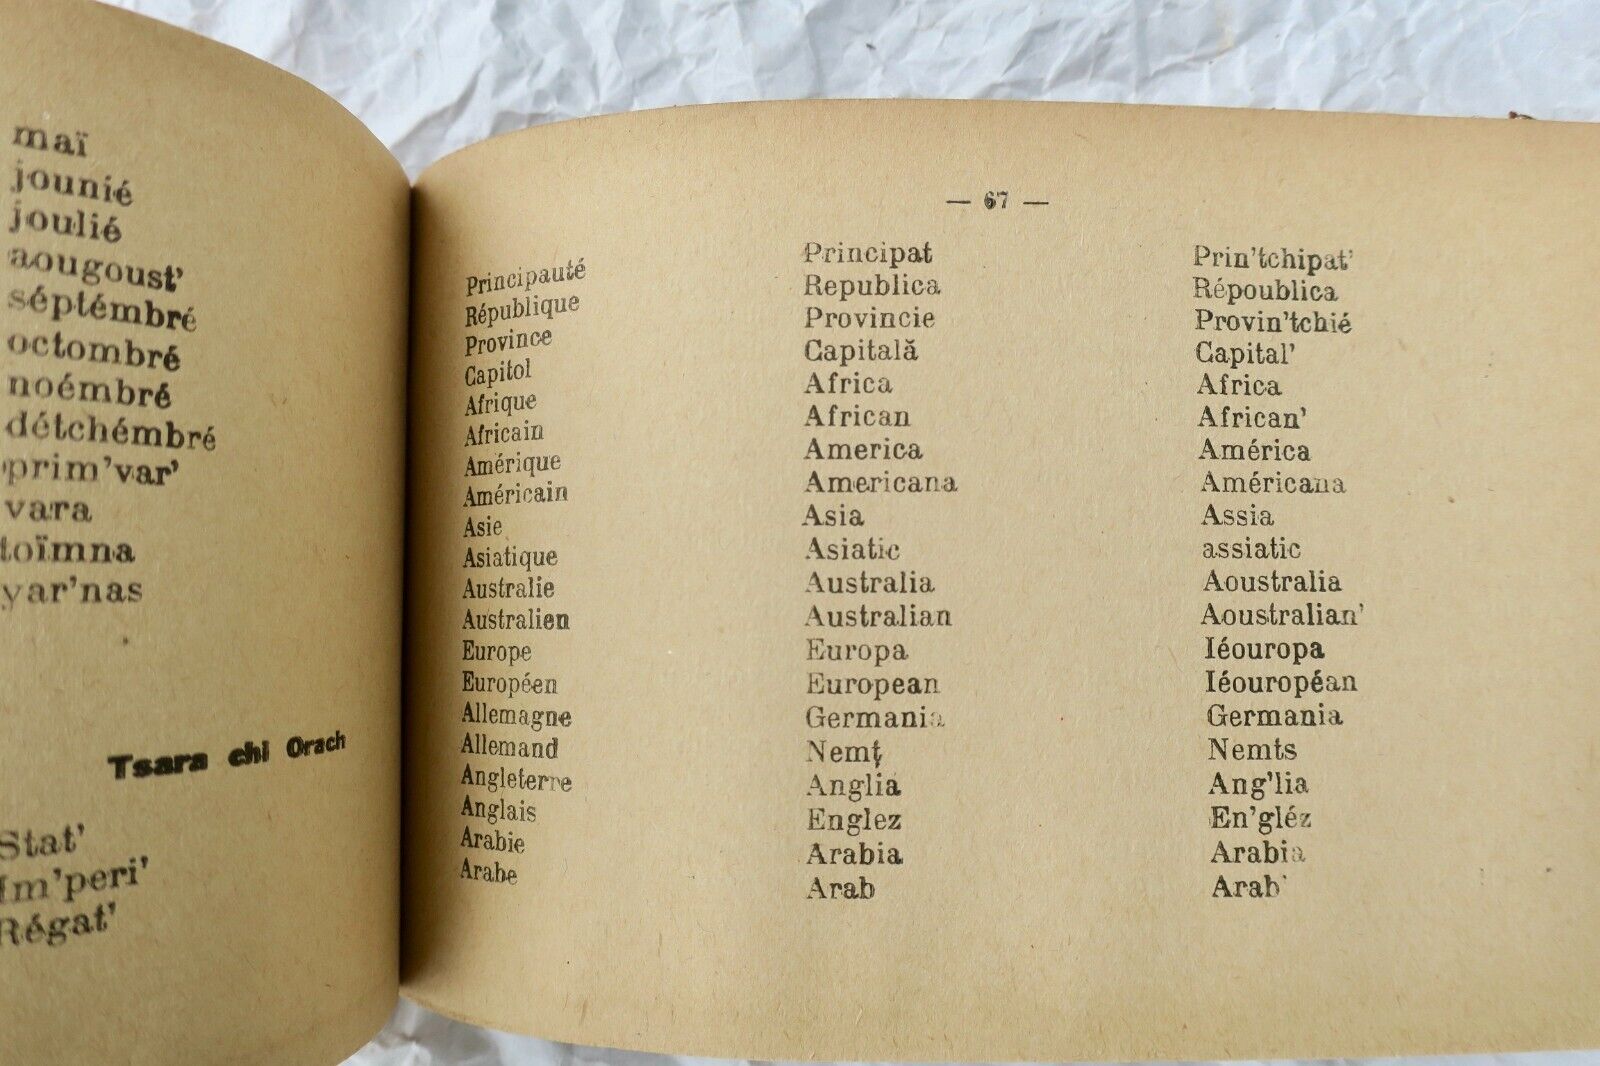 maï
jounié
joulié
aougoust'
séptémbré
octombré
noémbré
détchémbré
prim'var'
vara
toïmna
yar'nas
Tsara chi Orach
Stat'
Im'peri'
Régat'
— 67 —
Principauté Principat Prin'tchipat'
République Republica Répoublica
Province Provincie Provin'tchié
Capitol Capitală Capital'
Afrique Africa Africa
Africain African African'
Amérique America América
Américain Americana Américana
Asie Asia Assia
Asiatique Asiatic assiatic
Australie Australia Aoustralia
Australien Australian Aoustralian'
Europe Europa Iéouropa
Européen European Iéouropéan
Allemagne Germania Germania
Allemand Nemț Nemts
Angleterre Anglia Ang'lia
Anglais Englez En'gléz
Arabie Arabia Arabia
Arabe Arab Arab'